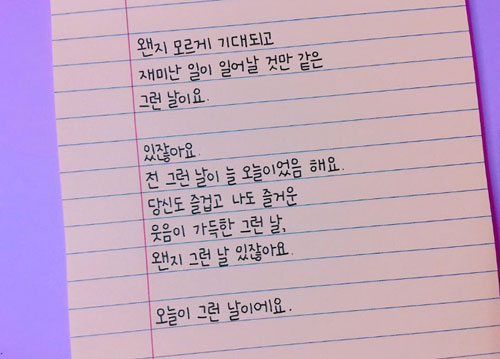 왠지 모르게 기대되고
재미난 일이 일어날 것만 같은
그런 날이요.
있잖아요.
전 그런 날이 늘 오늘이었음 해요.
당신도 즐겁고 나도 즐거운
웃음이 가득한 그런 날,
왠지 그런 날 있잖아요.
오늘이 그런 날이에요.